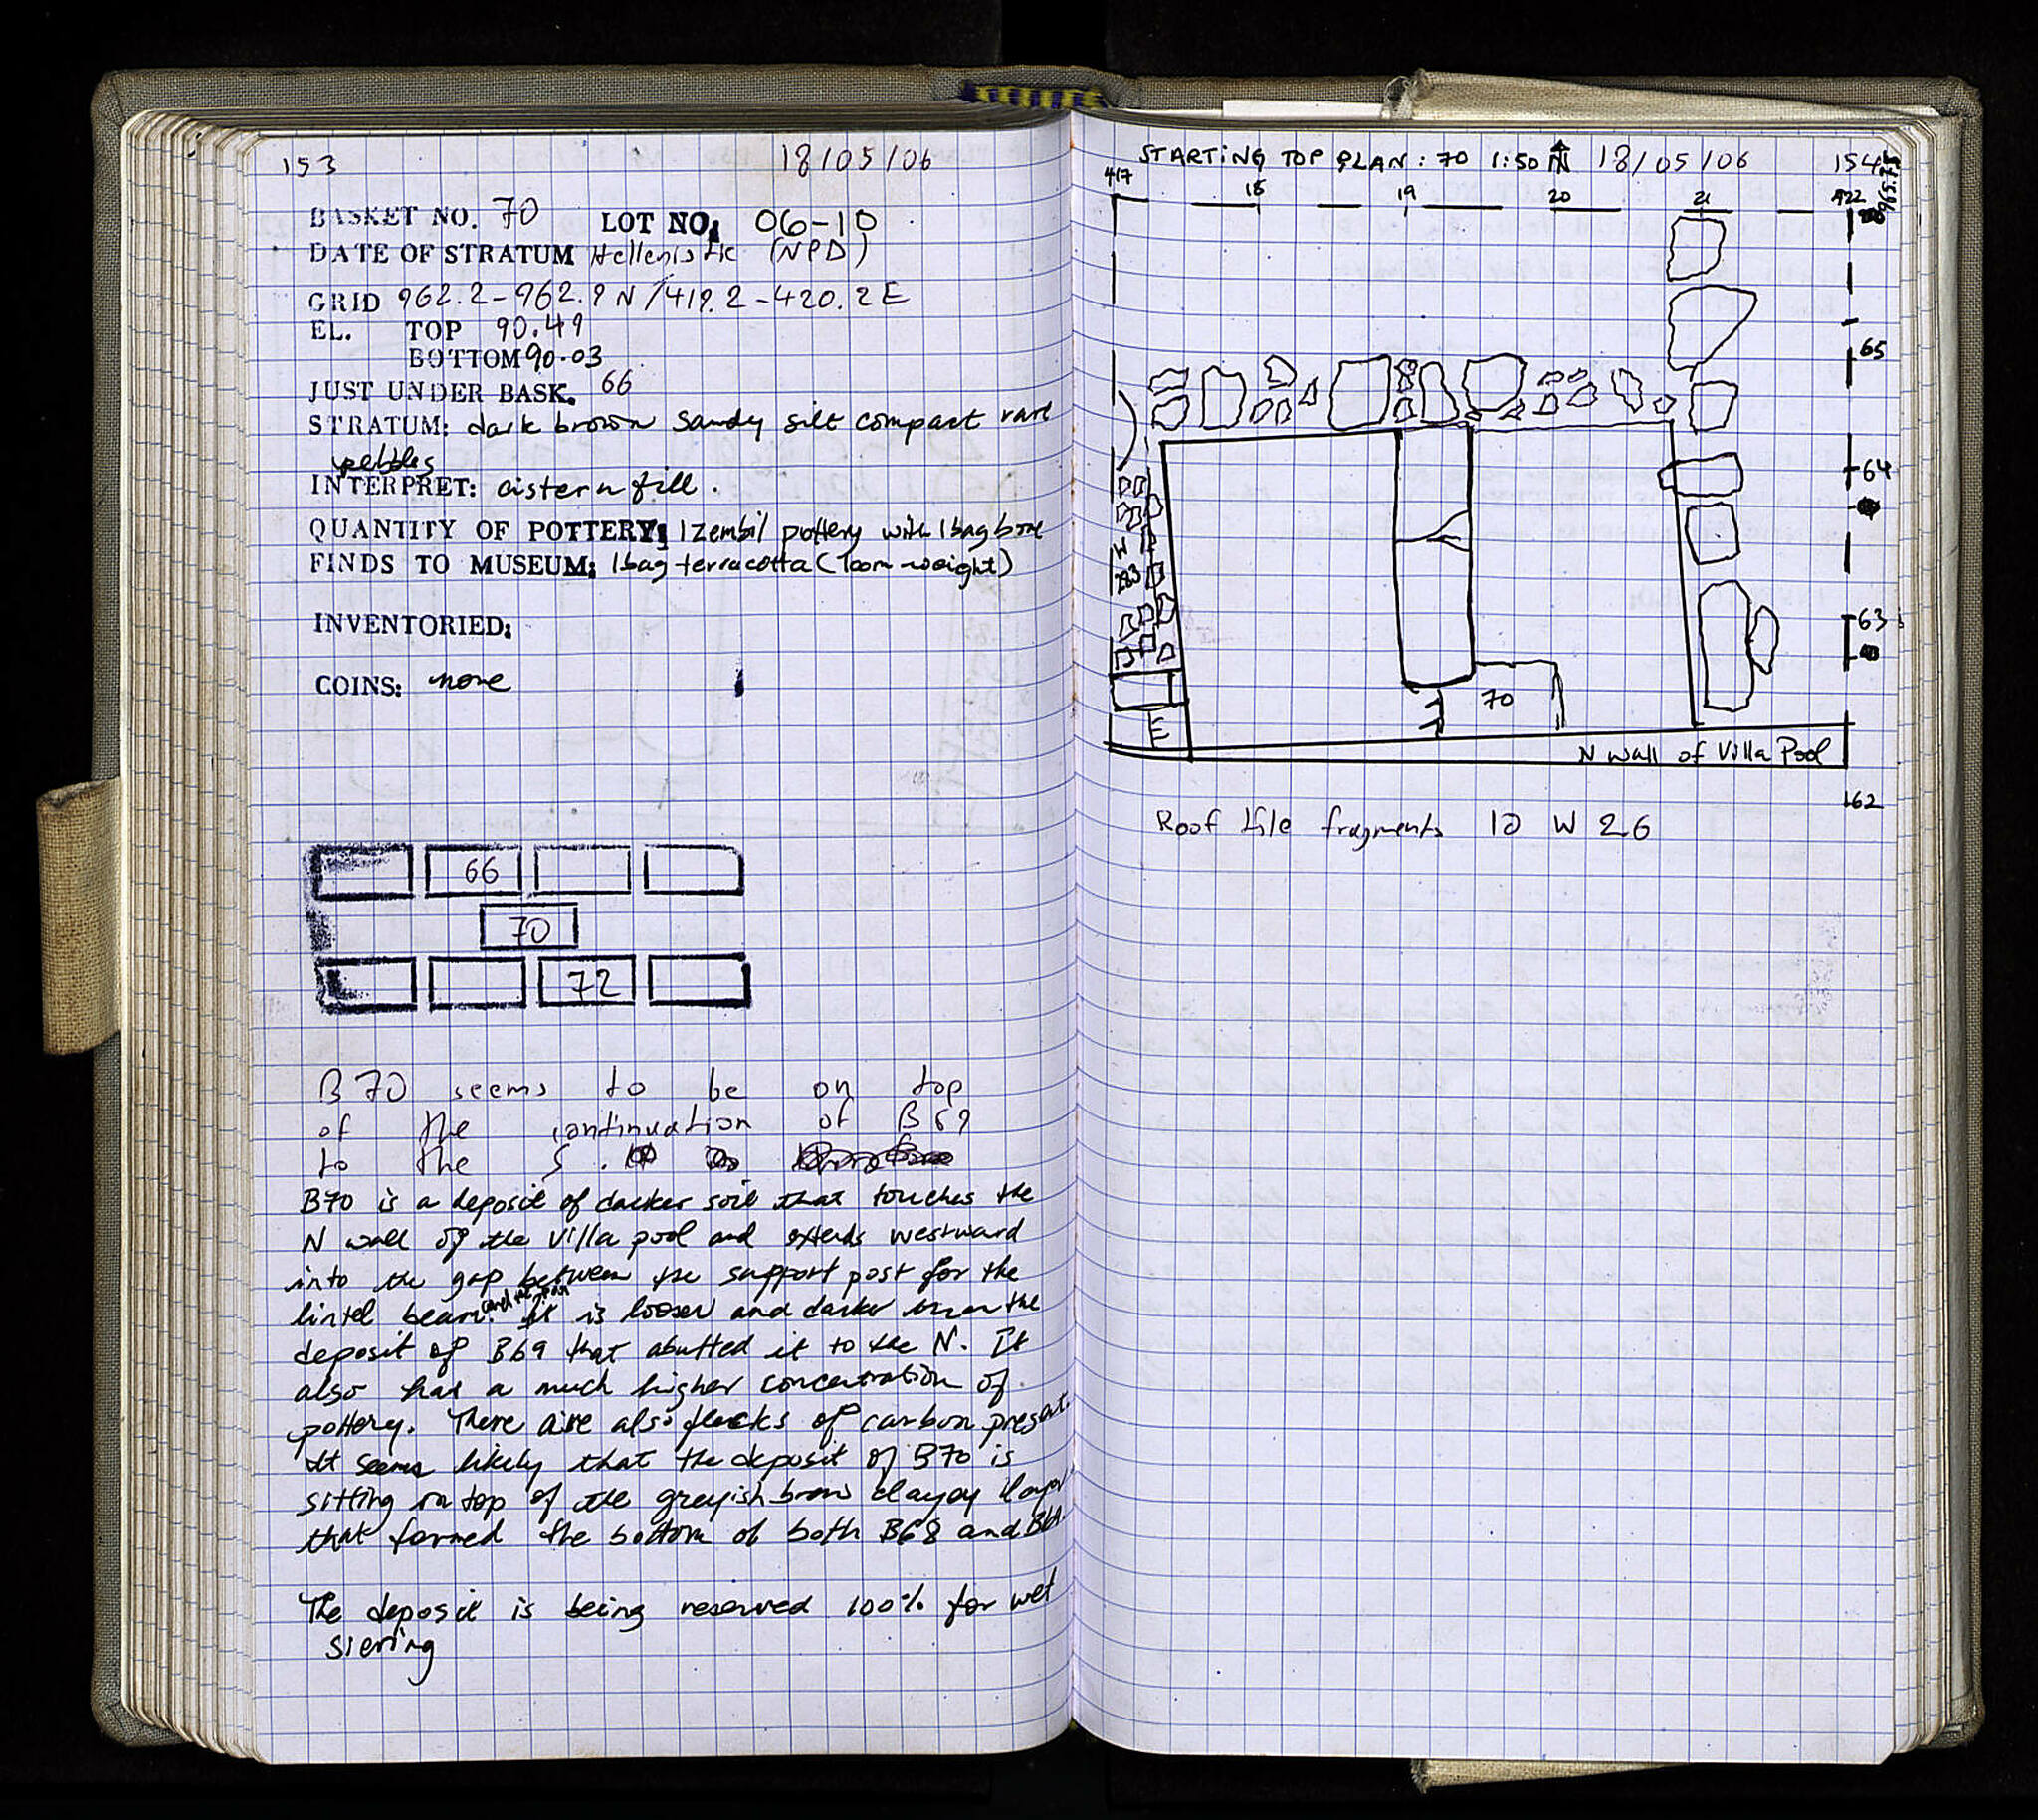 153 18/05/06
BASKET NO. 70 LOT NO. 06-10
DATE OF STRATUM Hellenistic (NPD)
GRID 962.2-962.9 N/419.2-420.2 E
EL. TOP 90.49
BOTTOM 90.03
JUST UNDER BASK. 66
STRATUM: dark brown sandy silt compact rare
pebbles
INTERPRET: cistern fill.
QUANTITY OF POTTERY: 1 zembil pottery with 1 bag bone
FINDS TO MUSEUM: 1 bag terracotta (loom weight)
INVENTORIED:
COINS: none
66
70
72
B 70 seems to be on top
of the continuation of B 69
to the S.
B70 is a deposit of darker soil that touches the
N wall of the Villa pool and extends westward
into the gap between the support post for the
lintel beam. It is looser and darker than the
deposit of B69 that abutted it to the N. It
also has a much higher concentration of
pottery. There are also flecks of carbon present.
It seems likely that the deposit of B70 is
sitting on top of the greyish brown clayey layer
that formed the bottom of both B68 and B69.
The deposit is being reserved 100% for wet
sieving
STARTING TOP PLAN: 70 1:50 N 18/05/06 154
417 18 19 20 21 422
965.75
65
64
W
283
63
70
N wall of Villa Pool
162
Roof tile fragments 10 W 26